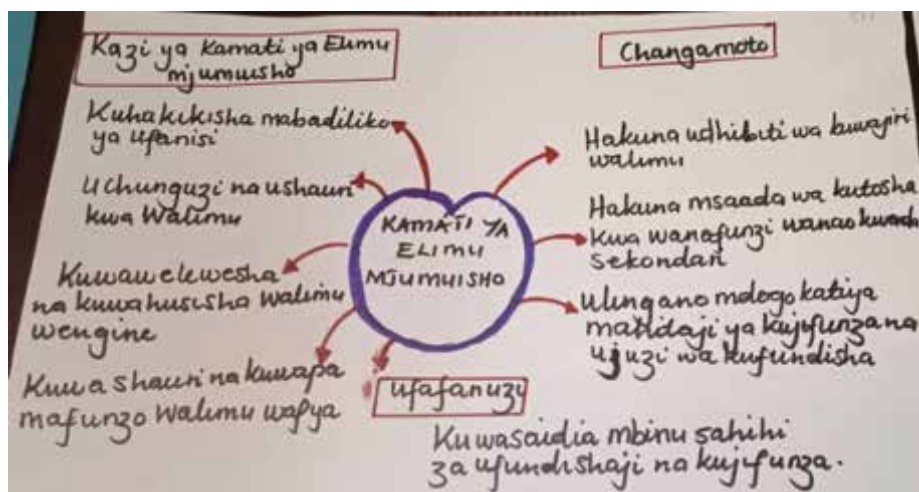 Kazi ya Kamati ya Elimu
mjumuisho
Kuhakikisha mabadiliko
ya ufanisi
Uchunguzi na ushauri
kwa Walimu
Kuwaelewesha
na kuwahusisha Walimu
wengine
Kuwashauri na kuwapa
mafunzo Walimu wapya
KAMATI YA
ELIMU
MJUMUISHO
Changamoto
Hakuna udhibiti wa kuwajiri
walimu
Hakuna msaada wa kutosha
kwa wanafunzi wanao
sekondari
Ulingano mdogo katiya
mahitaji ya kujifunza na
ujuzi wa kufundisha
ufafanuzi
Kuwasaidia mbinu sahihi
za ufundishaji na kujifunza.